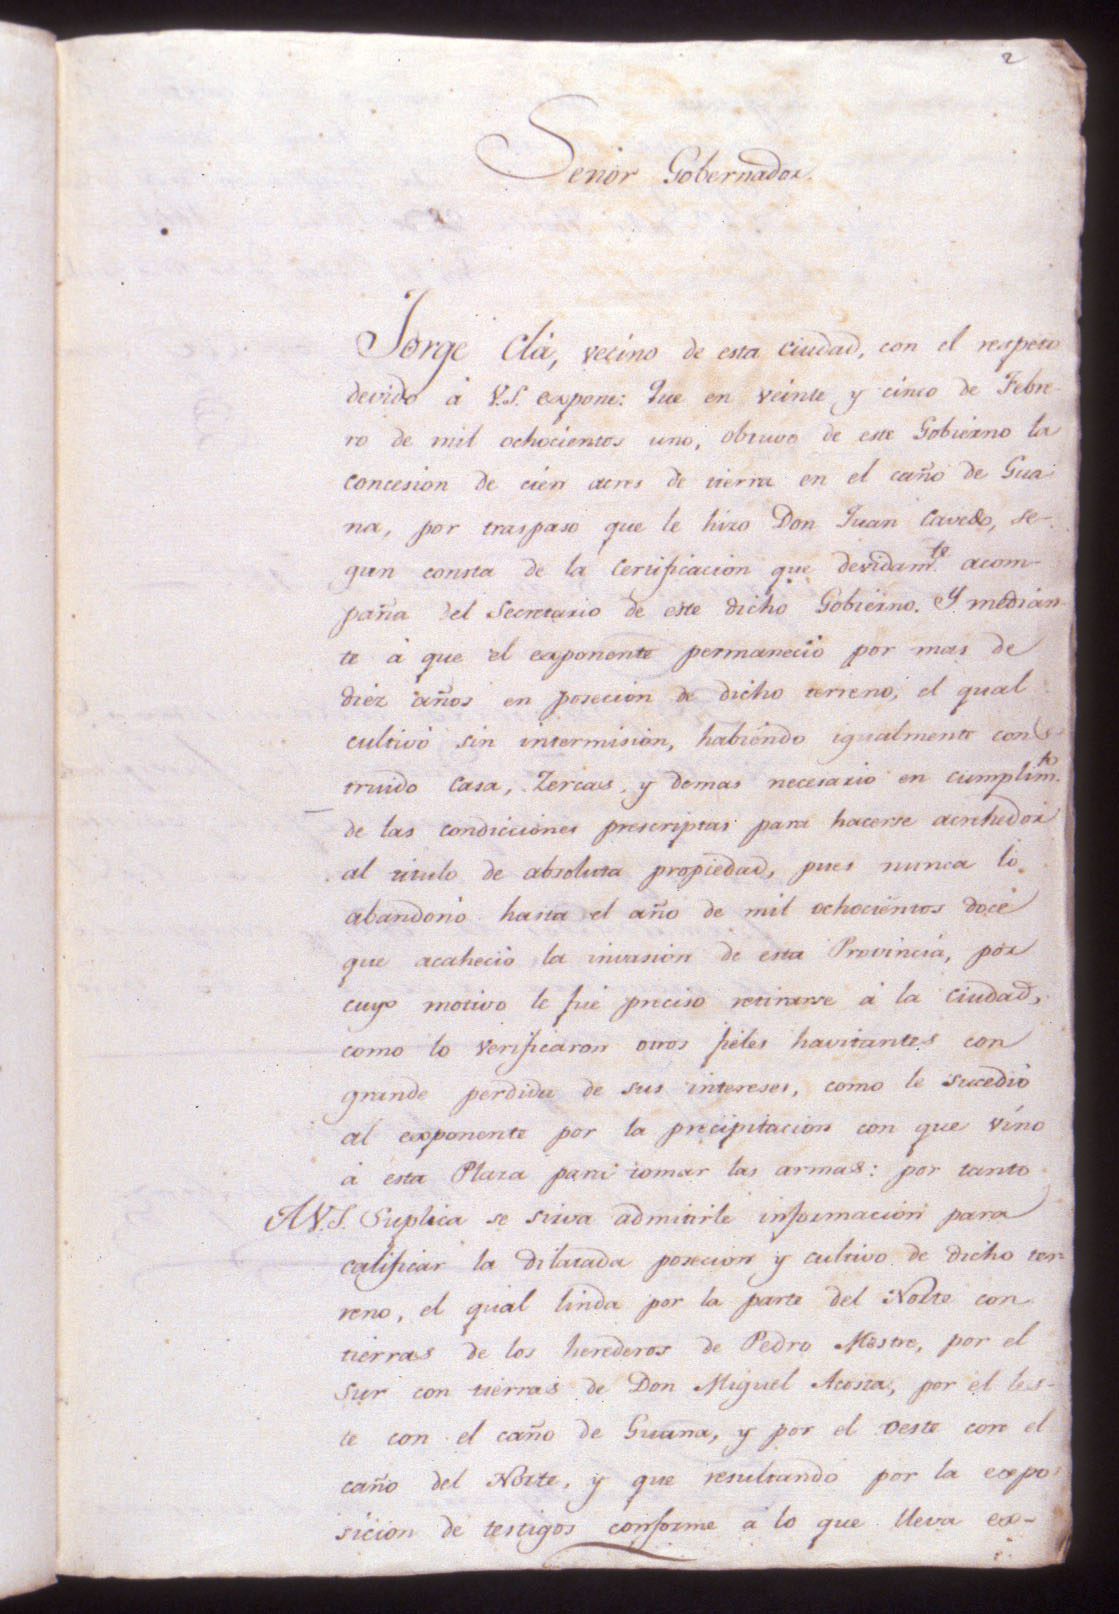 2
Señor Gobernador.
Jorge Clá, vecino de esta Ciudad, con el respeto
devido á V.S. expone: Que en veinte y cinco de Febre-
ro de mil ochocientos uno, obtuvo de este Gobierno la
concesion de cien acres de tierra en el caño de Gua
na, por traspaso que le hizo Don Juan Cavedo, se-
gun consta de la Certificacion que devidamte. acom-
paña del Secretario de este dicho Gobierno. Y median-
te á que el exponente permaneció por mas de
diez años en posecion de dicho terreno, el qual
cultivó sin intermision, habiendo igualmente cons-
truido Casa, Zercas, y demas necesario en cumplimto.
de las condicciones prescriptas para hacerse acrehedor
al titulo de absoluta propiedad, pues nunca lo
abandonó hasta el año de mil ochocientos doce
que acahecio la invasion de esta Provincia, por
cuyo motivo le fué preciso retirarse á la Ciudad,
como lo verificaron otros fieles havitantes con
grande perdida de sus intereses, como le sucedió
al exponente por la precipitacion con que vino
á esta Plaza para tomar las armas: por tanto
A V.S. Suplica se sirva admitirle informacion para
calificar la dilatada posecion y cultivo de dicho ter-
reno, el qual linda por la parte del Norte con
tierras de los herederos de Pedro Mestre, por el
Sur con tierras de Don Miguel Acosta, por el les-
te con el caño de Guana, y por el Oeste con el
caño del Norte, y que resultando por la expo
sicion de testigos conforme á lo que lleva ex-